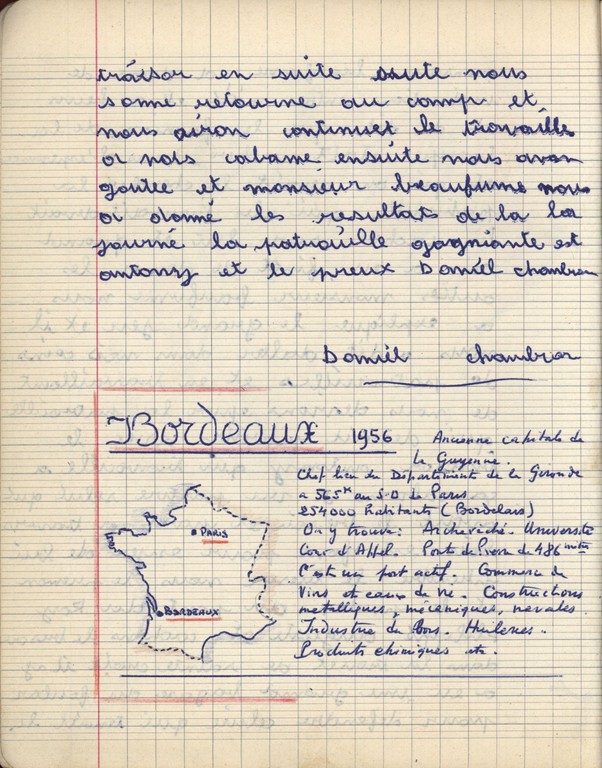 trésor en suite suite nous
some retourne au camp et
nous airon continuer le travaille
a nors cabame ensuite nous avon
goutee et monsieur beaufume nous
a donné les resultats de la la
journé la patrouille gagniante est
antony et le preux Daniél chambran
Daniél chambran
Bordeaux 1956 Ancienne capitale de
la Guyenne.
Chef lieu du Département de la Gironde
a 565 K au S-O de Paris
254000 habitants (Bordelais)
On y trouve: Archevêché. Université
Cour d'Appel. Pont de Pierre de 486 mètres
C'est un port actif. Commerce de
Vins et eaux de vie. Constructions
metalliques, mécaniques, navales.
Industrie du Bois. Huileries.
Produits chimiques etc.
PARIS
BORDEAUX